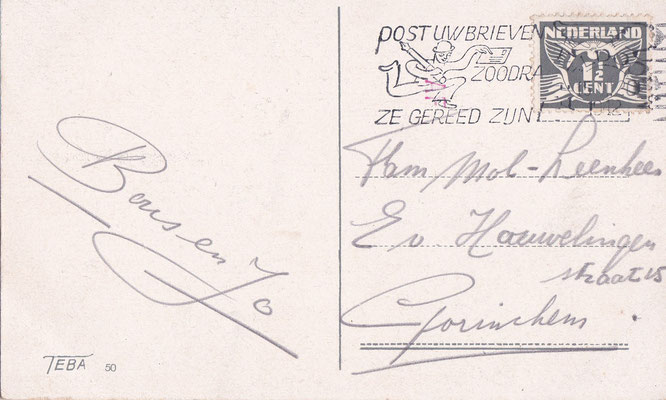 POST UW BRIEVEN
ZOODRA
ZE GEREED ZIJN!
NEDERLAND
1½
CENT
Fam Mol-Leenhees
E v. Houwelingen
straat 15
Gorinchem.
Bous en Jo
TEBA 50